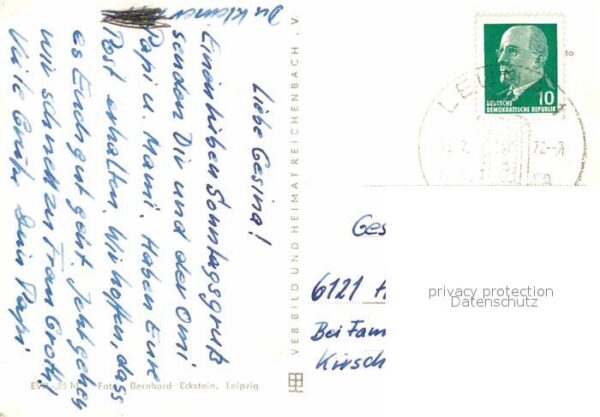 Liebe Gesina!
Einen lieben Sonntagsgruß
senden Dir und der Omi
Papi u. Mami. Haben Eure
Post erhalten. Wir hoffen, dass
es Euch gut geht. Jetzt gehen
wir schnell zu Frau Groth!
Viele Grüße Dein Papi.
Du kleiner
VEB BILD UND HEIMAT REICHENBACH I. V.
EVP -,25 M Foto: Bernhard Eckstein, Leipzig
10
DEUTSCHE
DEMOKRATISCHE REPUBLIK
72-8
Ges
6121
Bei Fam
Kirsch
privacy protection
Datenschutz